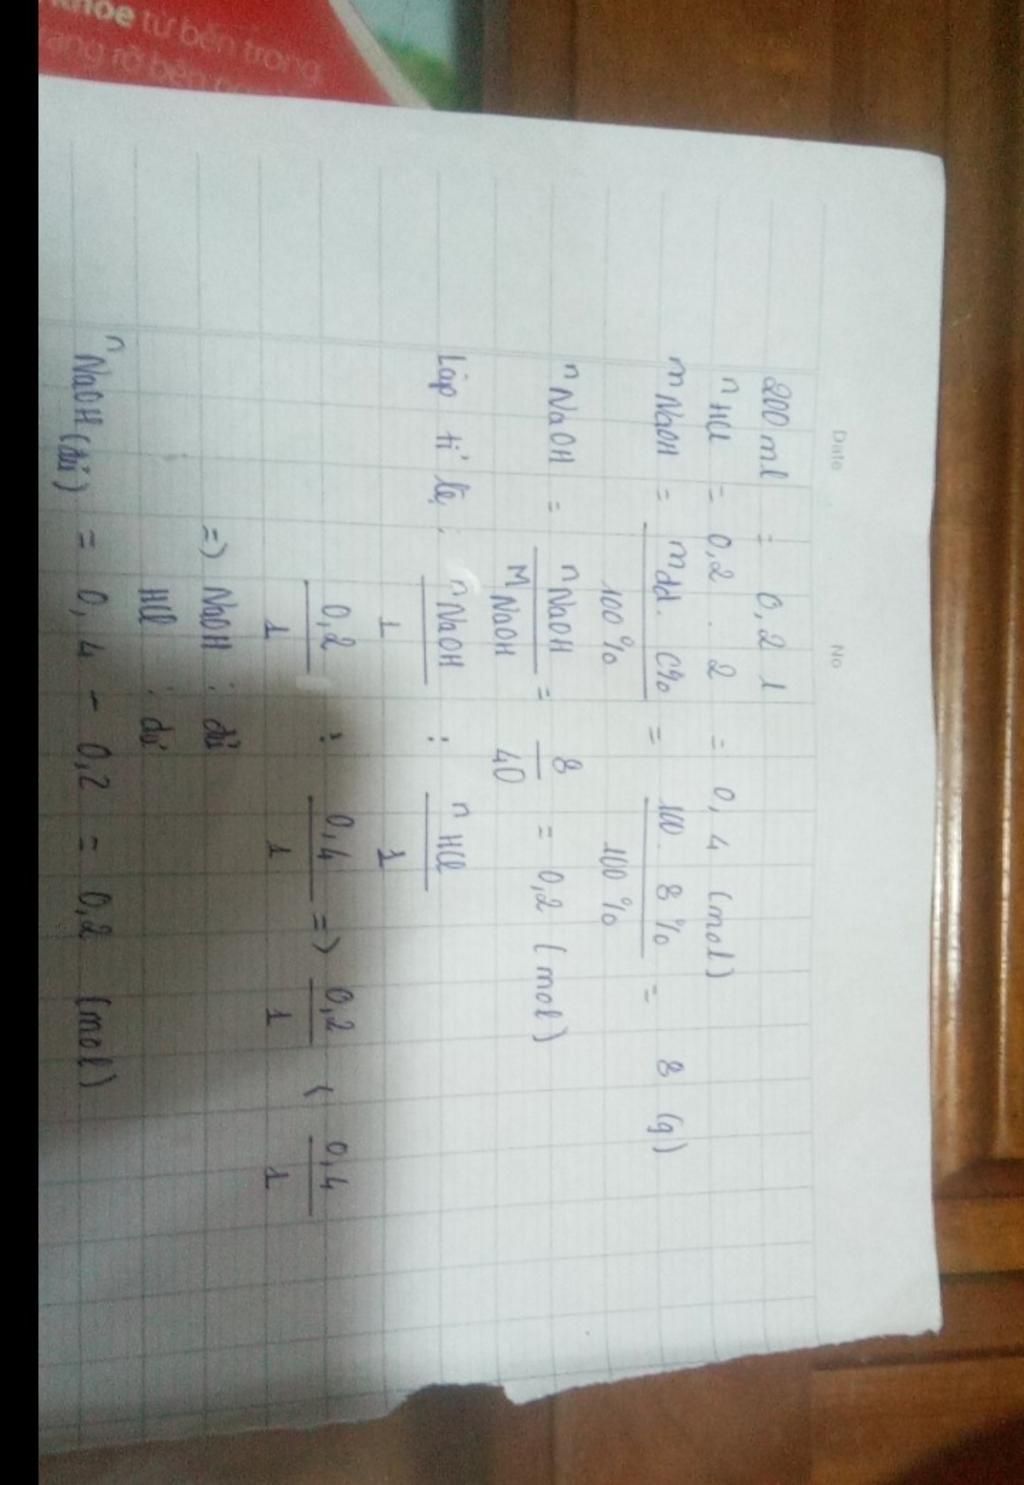 khỏe từ bên trong
rạng rỡ bên
Date No
200 ml = 0,2 l
n HCl = 0,2 . 2 = 0,4 (mol)
m NaOH = mdd. C% / 100% = 100. 8% / 100% = 8 (g)
n NaOH = n NaOH / M NaOH = 8 / 40 = 0,2 (mol)
Lập tỉ lệ : n NaOH / 1 : n HCl / 1
0,2 / 1 : 0,4 / 1 => 0,2 / 1 < 0,4 / 1
=> NaOH : đủ
HCl : dư
n NaOH (dư) = 0,4 - 0,2 = 0,2 (mol)